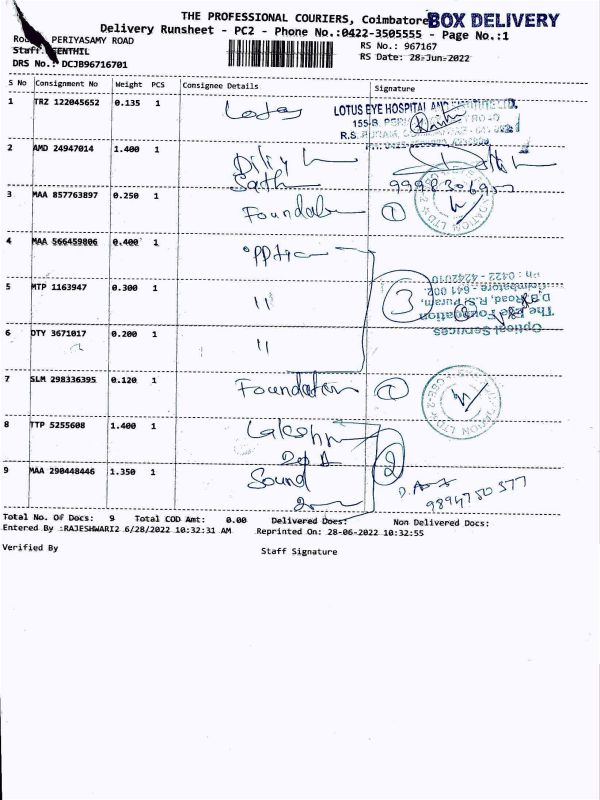 THE PROFESSIONAL COURIERS, Coimbatore BOX DELIVERY
Delivery Runsheet - PC2 - Phone No.:0422-3505555 - Page No.:1
PERIYASAMY ROAD
RS No.: 967167
Staff: SENTHIL
RS Date: 28-Jun-2022
DRS No.: DCJB96716701
S No Consignment No Weight PCS Consignee Details Signature
1 TRZ 122045652 0.135 1 Lotus
LOTUS EYE HOSPITAL AND INSTITUTE LTD.
2 AMD 24947014 1.400 1
3 MAA 857763897 0.250 1 Foundation 1
4 MAA 566459806 0.400 1 optica
5 MTP 1163947 0.300 1 " 3
Ph : 0422 - 4242010
Coimbatore - 641 002.
D.B. Road, R.S. Puram,
The Eye Foundation
Optical Services
6 DTY 3671017 0.200 1 "
7 SLM 298336395 0.120 1 Foundation 1
8 TTP 5255608 1.400 1 Lakshmi
2
9 MAA 290448446 1.350 1 Sound
9894750377
Total No. Of Docs: 9 Total COD Amt: 0.00 Delivered Docs: Non Delivered Docs:
Entered By :RAJESHWARI2 6/28/2022 10:32:31 AM Reprinted On: 28-06-2022 10:32:55
Verified By Staff Signature